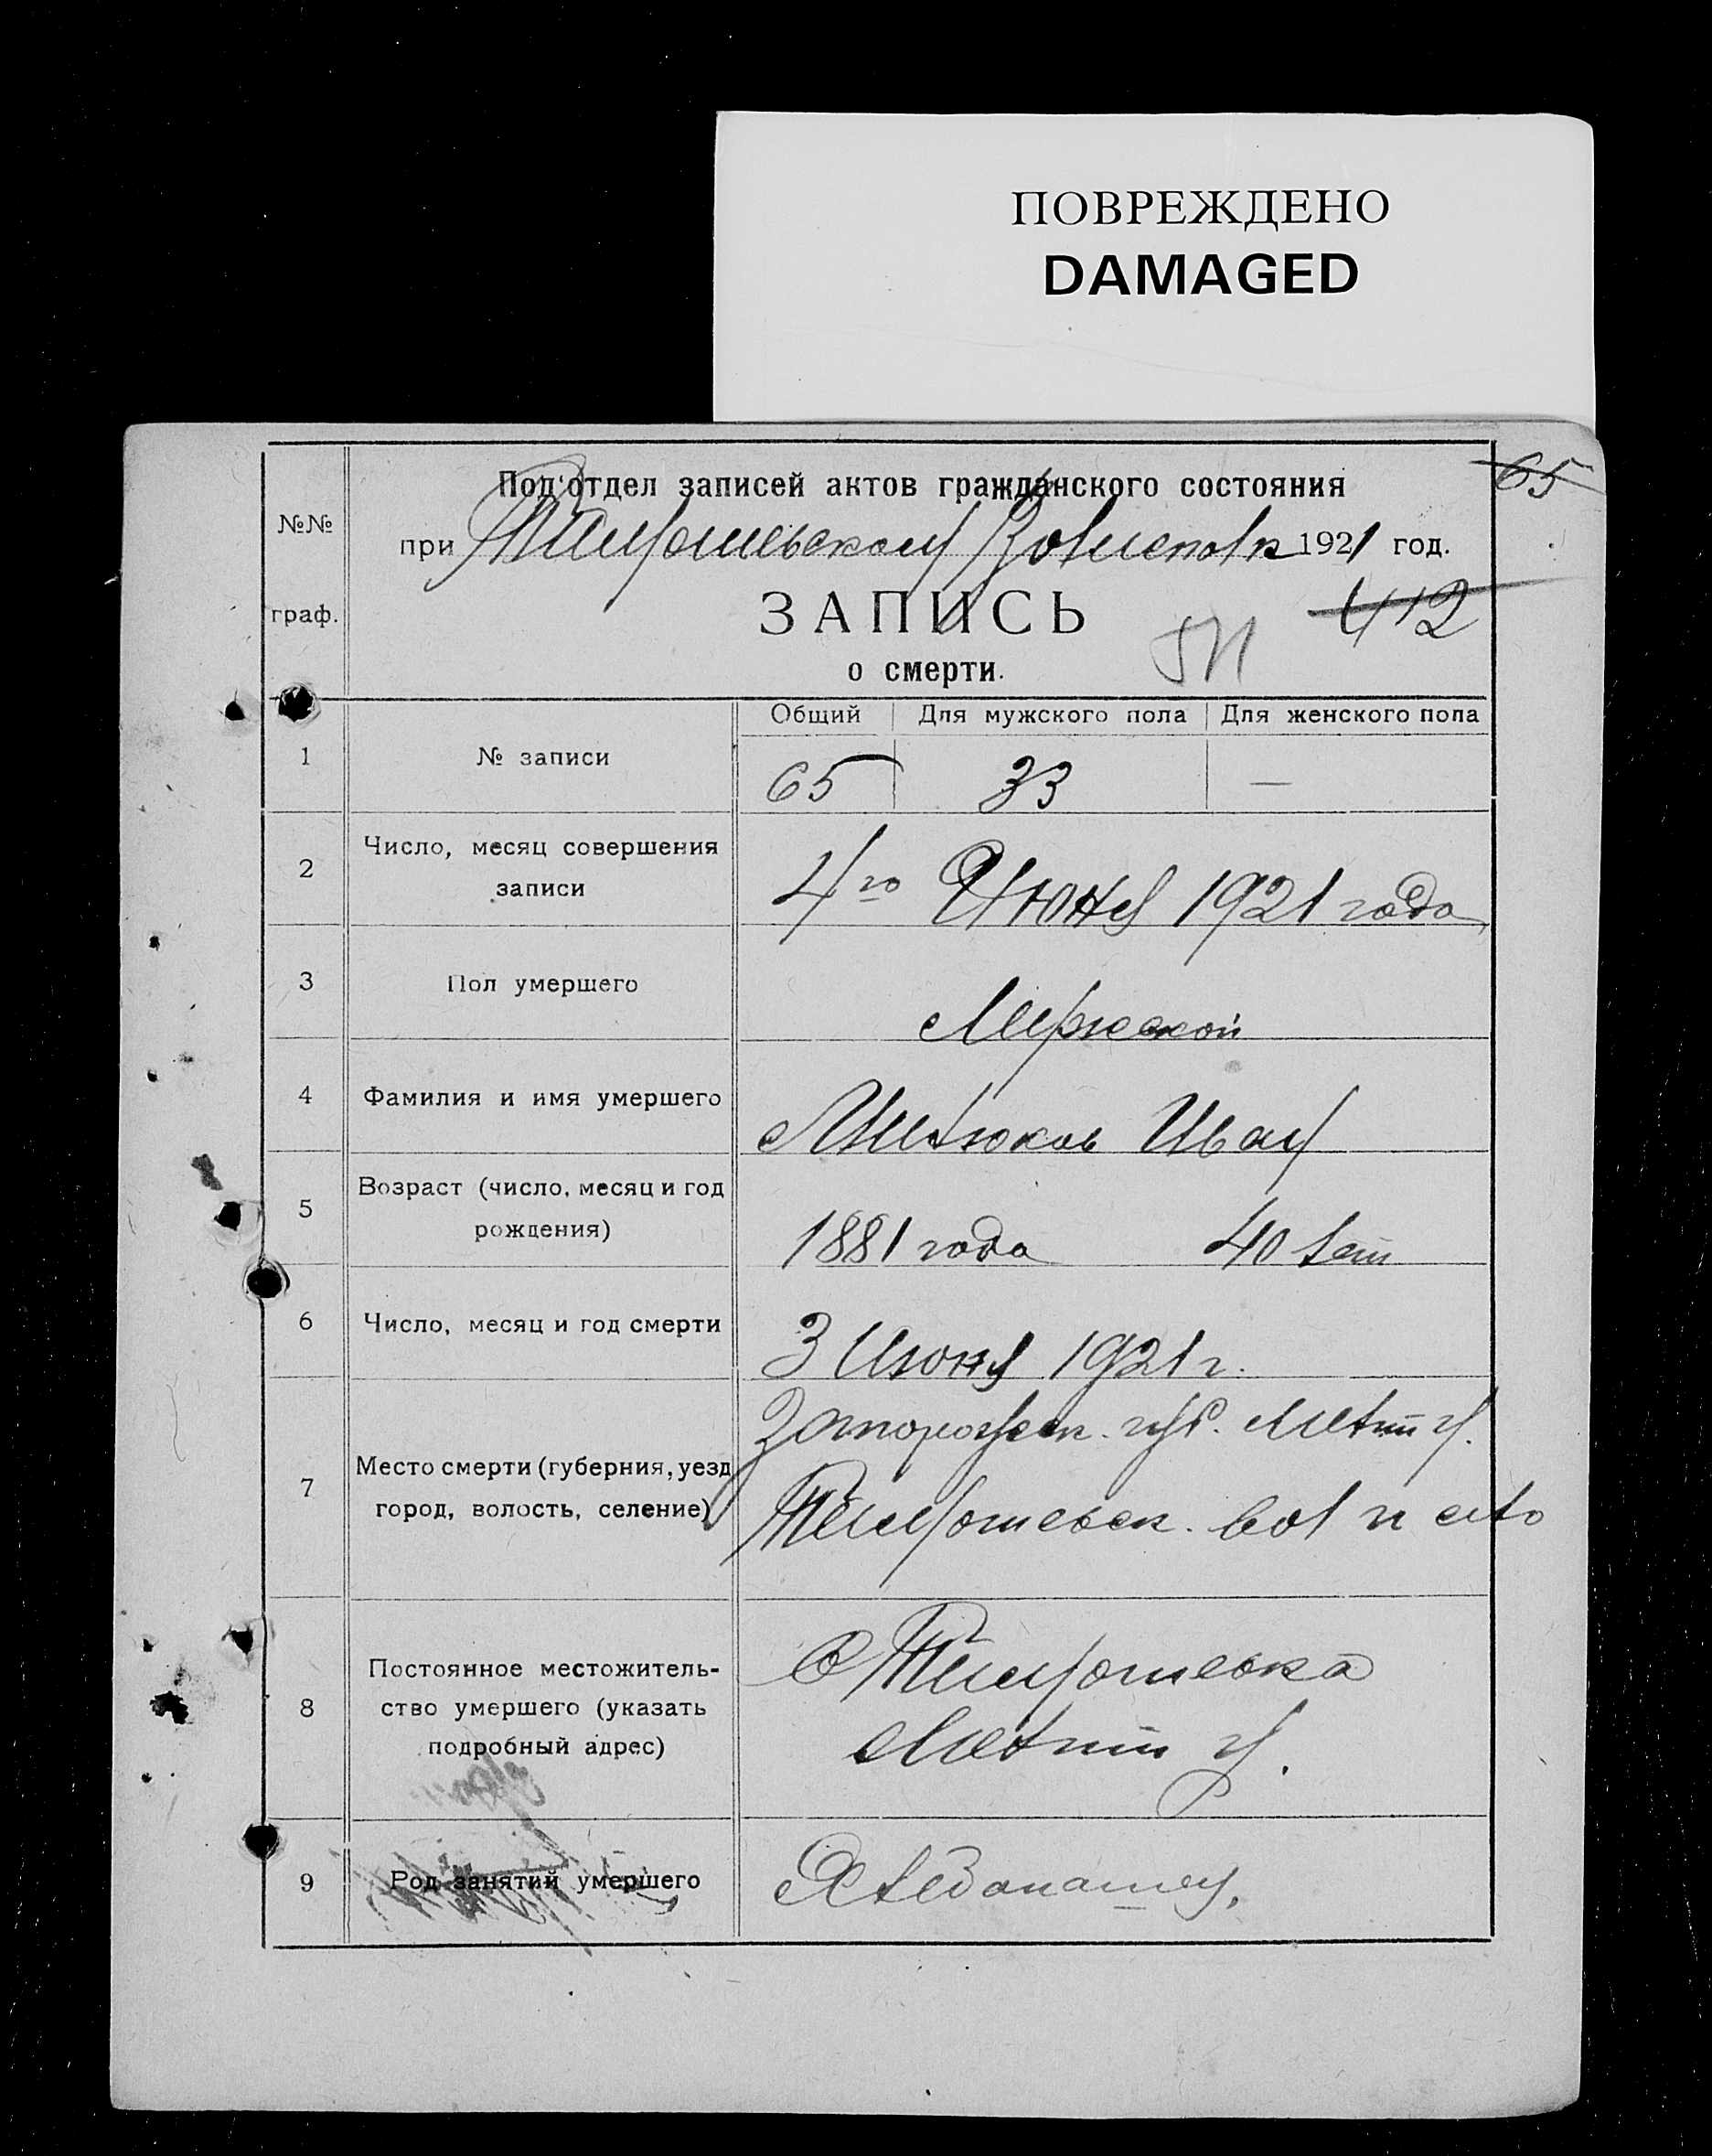 ПОВРЕЖДЕНО
DAMAGED
65
Под'отдел записей актов гражданского состояния
№№
при Тимошевском 1921 год.
граф.
ЗАПИСЬ
412
о смерти.
Общий Для мужского пола Для женского пола
1 № записи 65 33 —
2 Число, месяц совершения
записи 4го Июня 1921 года
3 Пол умершего Мужской
4 Фамилия и имя умершего Иван
5 Возраст (число, месяц и год
рождения) 1881 года 40 лет
6 Число, месяц и год смерти 3 Июня 1921 г.
Запорожск. губ. Мелит у.
7 Место смерти (губерния, уезд
город, волость, селение) Тимошевск. вол и село
8 Постоянное местожитель-
ство умершего (указать
подробный адрес)
С Тимошевка
Мелит у.
9 Род занятий умершего Хлебопашец.